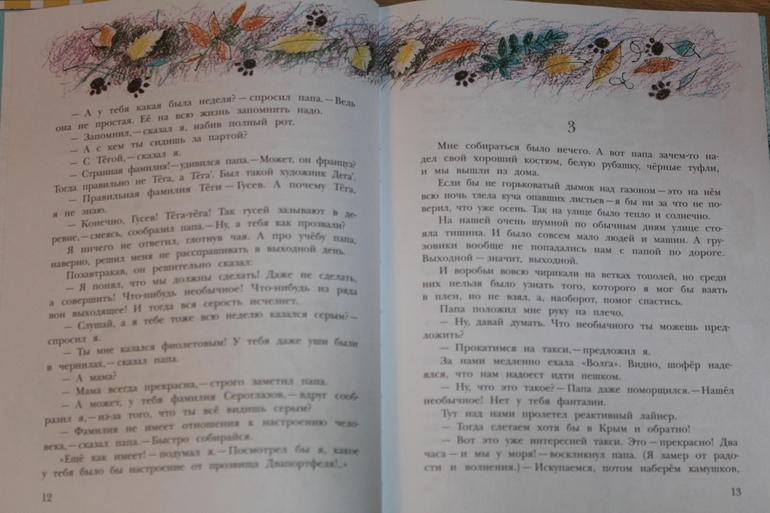 — А у тебя какая была неделя? — спросил папа. — Ведь
она не простая. Её на всю жизнь запомнить надо.
— Запомнил, — сказал я, набив полный рот.
— А с кем ты сидишь за партой?
— С Тёгой, — сказал я.
— Странная фамилия! — удивился папа. — Может, он француз?
Тогда правильно не Тёга, а Тега́. Был такой художник Дега́.
— Правильная фамилия Тёги — Гусев. А почему Тёга,
я не знаю.
— Конечно, Гусев! Тёга-тёга! Так гусей зазывают в де-
ревне, — смеясь, сообразил папа. — Ну, а тебя как прозвали?
Я ничего не ответил, глотнув чая. А про учёбу папа,
наверно, решил меня не расспрашивать в выходной день.
Позавтракав, он решительно сказал:
— Я понял, что мы должны сделать! Даже не сделать,
а совершить! Что-нибудь необычное! Что-нибудь из ряда
вон выходящее! И тогда вся серость исчезнет.
— Слушай, а я тебе тоже всю неделю казался серым? —
спросил я.
— Ты мне казался фиолетовым! У тебя даже уши были
в чернилах, — сказал папа.
— А мама?
— Мама всегда прекрасна, — строго заметил папа.
— А может, у тебя фамилия Сероглазов, — вдруг сооб-
разил я, — из-за того, что ты всё видишь серым?
— Фамилия не имеет отношения к настроению чело-
века, — сказал папа. — Быстро собирайся.
«Ещё как имеет! — подумал я. — Посмотрел бы я, какое
у тебя было бы настроение от прозвища Двапортфеля!..»
12
3
Мне собираться было нечего. А вот папа зачем-то на-
дел свой хороший костюм, белую рубашку, чёрные туфли,
и мы вышли из дома.
Если бы не горьковатый дымок над газоном — это на нём
всю ночь тлела куча опавших листьев — я бы ни за что не по-
верил, что уже осень. Так на улице было тепло и солнечно.
На нашей очень шумной по обычным дням улице сто-
яла тишина. И было совсем мало людей и машин. А гру-
зовики вообще не попадались нам с папой по дороге.
Выходной — значит, выходной.
И воробьи вовсю чирикали на ветках тополей, но среди
них нельзя было узнать того, которого я мог бы взять
в плен, но не взял, а, наоборот, помог спастись.
Папа положил мне руку на плечо.
— Ну, давай думать. Что необычного ты можешь пред-
ложить?
— Прокатимся на такси, — предложил я.
За нами медленно ехала «Волга». Видно, шофёр наде-
ялся, что нам надоест идти пешком.
— Ну, что это такое? — Папа даже поморщился. — Нашёл
необычное! Нет у тебя фантазии.
Тут над нами пролетел реактивный лайнер.
— Тогда слетаем хотя бы в Крым и обратно!
— Вот это уже интересней такси. Это — прекрасно! Два
часа — и мы у моря! — воскликнул папа. (Я замер от радо-
сти и волнения.) — Искупаемся, потом наберём камушков,
13